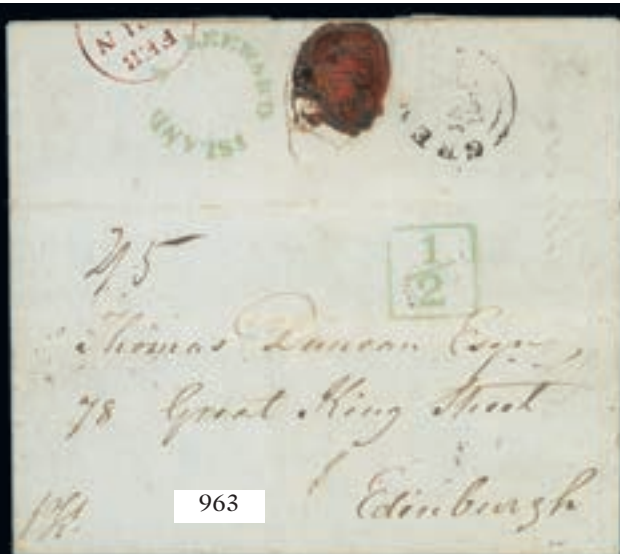 FEB
LEEWARD
ISLAND
GRE
2/5
1/2
Thomas Duncan Esqr
78 Great King Street
Edinburgh
963